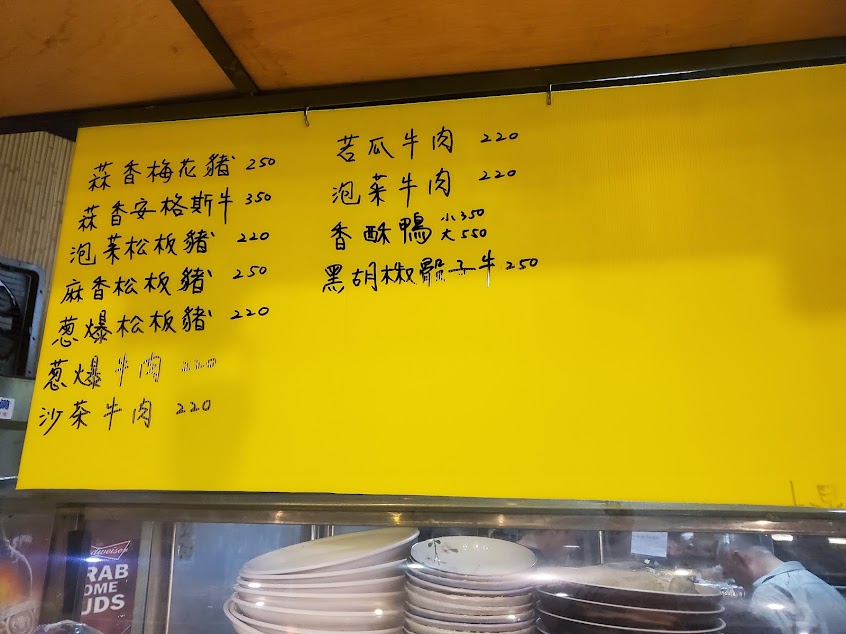 蒜香梅花豬 250
蒜香安格斯牛 350
泡菜松板豬 220
麻香松板豬 250
葱爆松板豬 220
葱爆牛肉 220
沙茶牛肉 220
苦瓜牛肉 220
泡菜牛肉 220
香酥鴨 小350
大550
黑胡椒骰子牛 250
Budweiser
RAB
OME
UDS